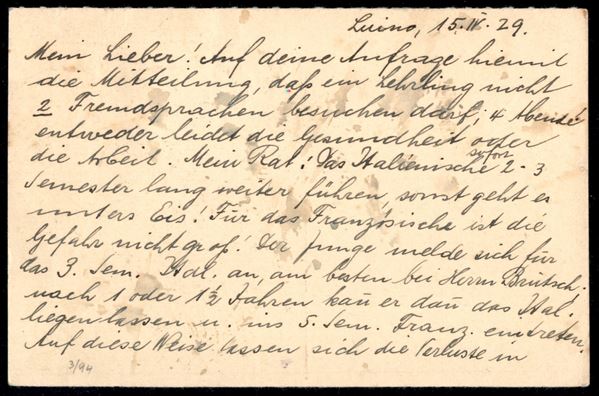 Luino, 15.IV.29.
Mein Lieber! Auf deine Anfrage hiemit
die Mitteilung, daß ein Lehrling nicht
2 Fremdsprachen besuchen darf; 4 Abende!
entweder leidet die Gesundheit oder
die Arbeit. Mein Rat: Das Italienische sofort 2-3
Semester lang weiter führen, sonst geht es
unters Eis! Für das Französische ist die
Gefahr nicht groß! Der Junge melde sich für
das 3. Sem. Ital. an, am besten bei Herrn Brütsch!
nach 1 oder 1½ Jahren kan̄ er dan̄ das Ital.
liegen lassen u. ins 5. Sem. Franz. eintreten.
Auf diese Weise lassen sich die Verluste in
3/94